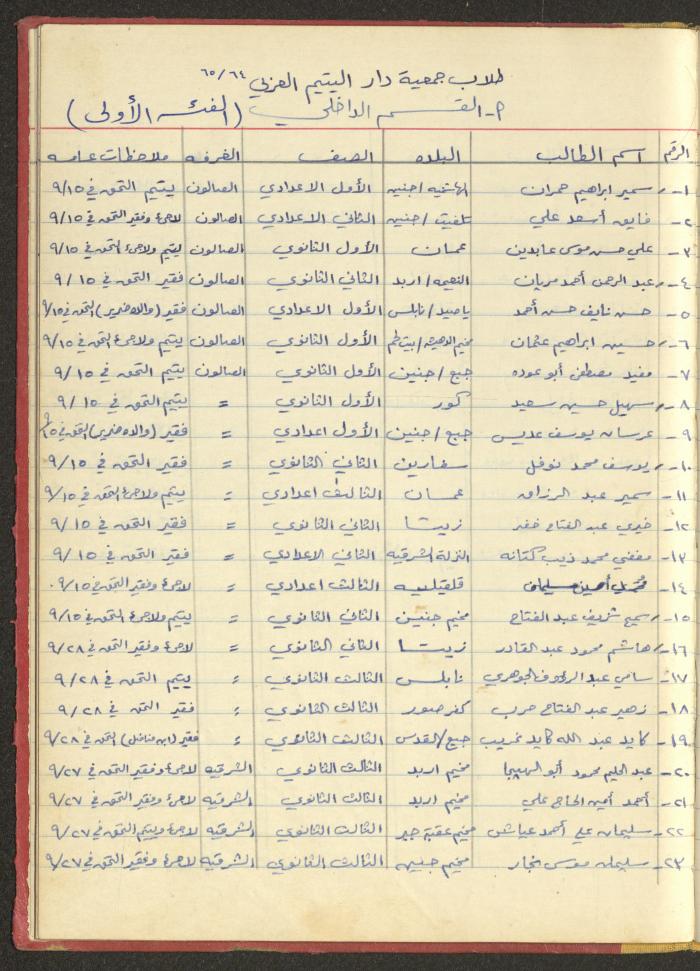 طلاب جمعية دار اليتيم العربي ٦٤/٦٥
٢- القسم الداخلي (الفئة الأولى)
الرقم اسم الطالب البلده الصف الغرفه ملاحظات عامه
١- سمير ابراهيم حمران الهاشميه / جنين الأول الاعدادي الصالون يتيم التحق في ٩/١٥
٢- فايق أسعد علي تلفيت / جنين الثاني الاعدادي الصالون لاجئ وفقير التحق في ٩/١٥
٣- علي حسن موسى عابدين عمان الأول الثانوي الصالون يتيم ولاجئ التحق في ٩/١٥
٤- عبد الرحمن أحمد مريان النعيمه / اربد الثاني الثانوي الصالون فقير التحق في ٩/١٥
٥- حسن نايف حسن أحمد ياصيد / نابلس الأول الاعدادي الصالون فقير (والده ضرير) التحق في ٩/١٥
٦- حسين ابراهيم عثمان مخيم الدهيشه / بيت لحم الأول الثانوي الصالون يتيم ولاجئ التحق في ٩/١٥
٧- مفيد مصطفى أبو عوده جبع / جنين الأول الثانوي الصالون يتيم التحق في ٩/١٥
٨- سهيل حسين سعيد كور الأول الثانوي = يتيم التحق في ٩/١٥
٩- عرسان يوسف عديس جبع / جنين الأول اعدادي = فقير (والده ضرير) التحق في ٩/١٥
١٠- يوسف محمد نوفل سفارين الثاني الثانوي = فقير التحق في ٩/١٥
١١- سمير عبد الرزاق عمان الثالث اعدادي = يتيم ولاجئ التحق في ٩/١٥
١٢- خيري عبد الفتاح خضر زيتا الثاني الثانوي = فقير التحق في ٩/١٥
١٣- مفضي محمد ذيب كتانه النزلة الشرقيه الثاني الاعدادي = فقير التحق في ٩/١٥
١٤- محمد أمين سليمان قلقيليه الثالث اعدادي = لاجئ وفقير التحق في ٩/١٥
١٥- سميح شريف عبد الفتاح مخيم جنين الثاني الثانوي = يتيم ولاجئ التحق في ٩/١٥
١٦- هاشم محمود عبد القادر زيتا الثاني الثانوي = لاجئ وفقير التحق في ٩/٢٨
١٧- سامي عبد الرؤوف الجوهري نابلس الثالث الثانوي = يتيم التحق في ٩/٢٨
١٨- زهير عبد الفتاح حرب كفر صور الثالث الثانوي = فقير التحق في ٩/٢٨
١٩- كايد عبد الله كايد غريب جبع / القدس الثالث الثانوي = فقير (ابن مناضل) التحق في ٩/٢٨
٢٠- عبد الحليم محمود أبو الهيجا مخيم اربد الثالث الثانوي الشرقيه لاجئ وفقير التحق في ٩/٢٧
٢١- أحمد أمين الحاج علي مخيم اربد الثالث الثانوي الشرقيه لاجئ وفقير التحق في ٩/٢٧
٢٢- سليمان علي أحمد عياش مخيم عقبة جبر الثالث الثانوي الشرقيه لاجئ ويتيم التحق في ٩/٢٧
٢٣- سليمان موسى نجار مخيم الثالث الثانوي الشرقيه لاجئ وفقير التحق في ٩/٢٧